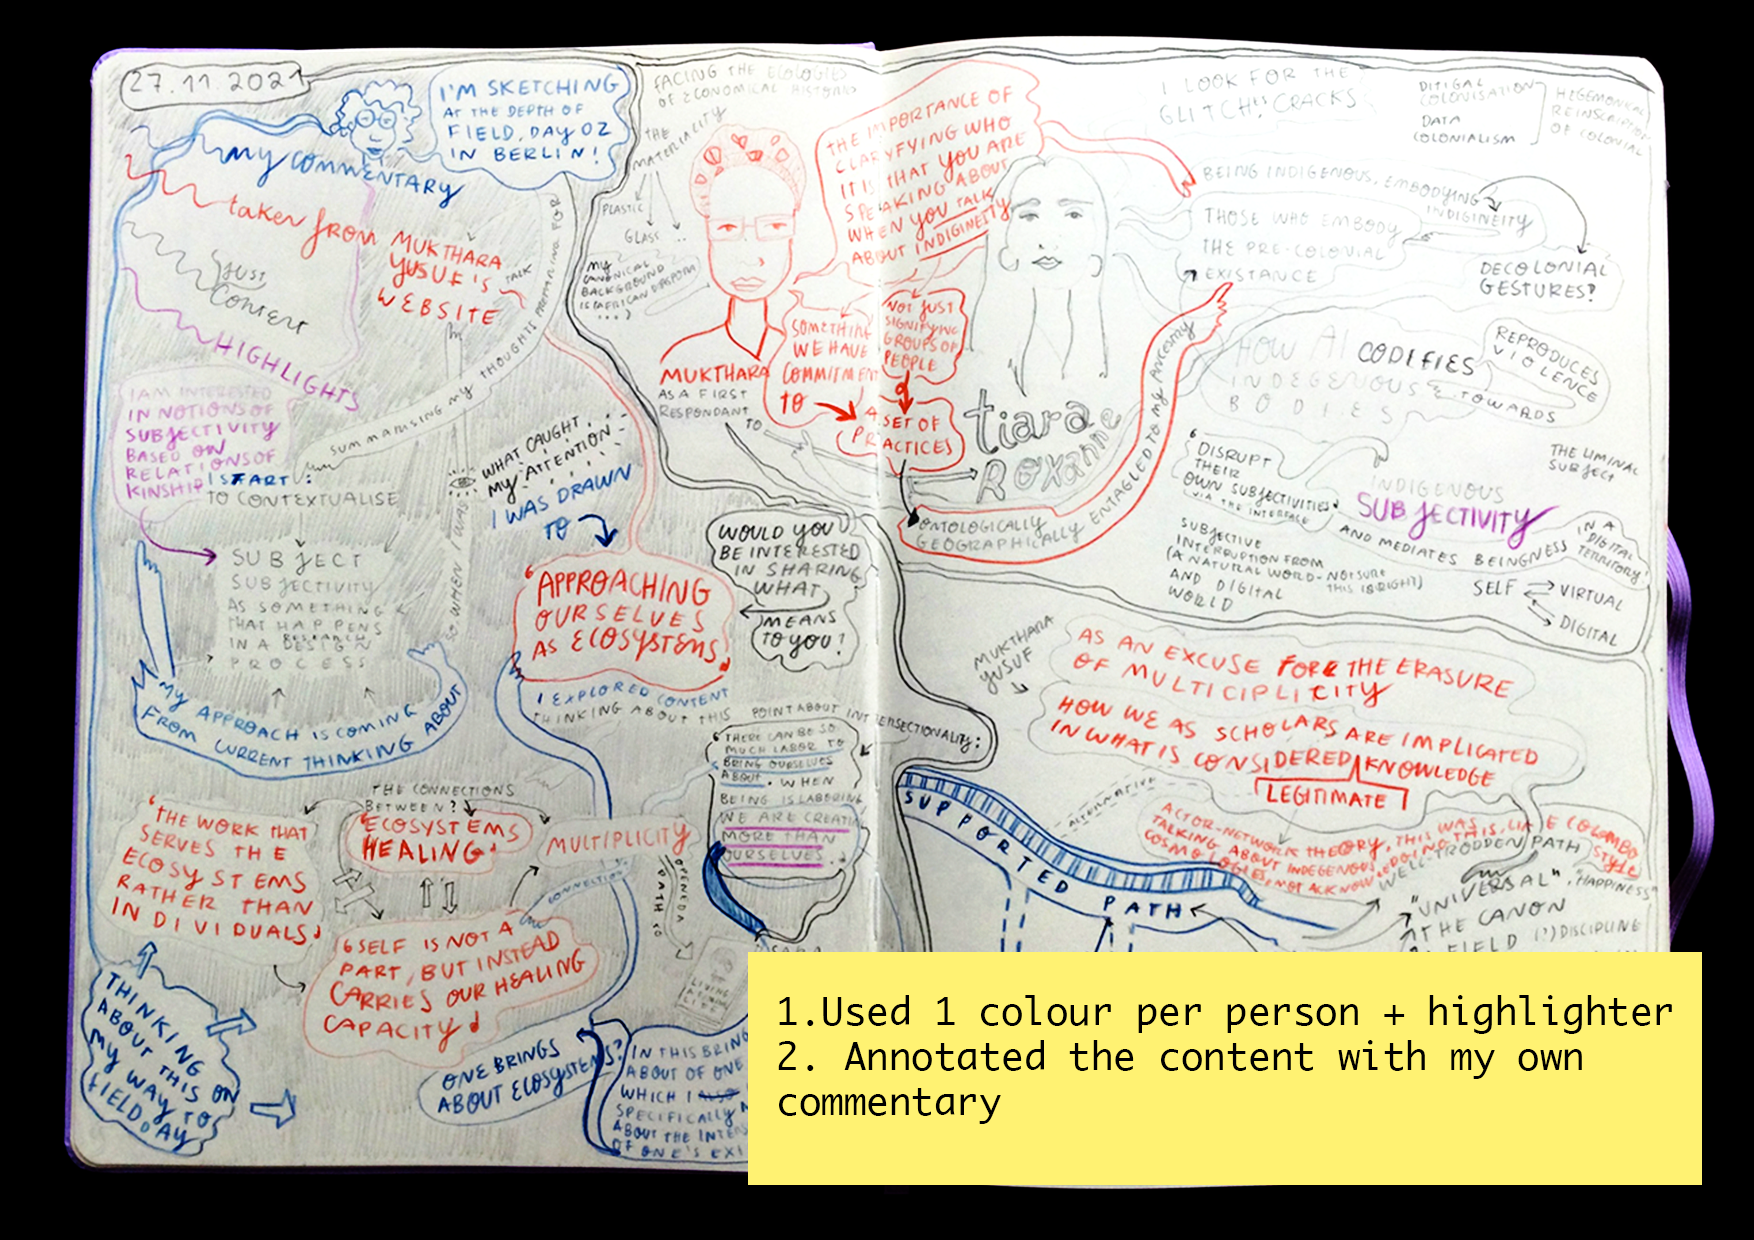 27.11.2021
I'M SKETCHING
AT THE DEPTH OF
FIELD, DAY 02
IN BERLIN!
my commentary
taken from MUKTHARA
YUSUF'S
WEBSITE
TALK
JUST
CONTENT
HIGHLIGHTS
SUMMARISING MY THOUGHTS PREPARING FOR
I AM INTERESTED
IN NOTIONS OF
SUBJECTIVITY
BASED ON
RELATIONS OF
KINSHIP
TO CONTEXTUALISE
SUBJECT
SUBJECTIVITY
AS SOMETHING
THAT HAPPENS
IN A DESIGN
RESEARCH
PROCESS
MY APPROACH IS COMING
FROM CURRENT THINKING ABOUT
SO WHEN I WAS
WHAT CAUGHT
MY ATTENTION
I WAS DRAWN
TO
'APPROACHING
OURSELVES
AS ECOSYSTEMS'
I EXPLORED CONTENT
THINKING ABOUT THIS
WOULD YOU
BE INTERESTED
IN SHARING
WHAT
MEANS
TO YOU?
POINT ABOUT INTERSECTIONALITY:
'THERE CAN BE SO
MUCH LABOR TO
BRING OURSELVES
ABOUT. WHEN
BEING IS LABORING
WE ARE CREATI
MORE THAN
OURSELVES.
THE CONNECTIONS
BETWEEN?
'THE WORK THAT
SERVES THE
ECOSYSTEMS
RATHER THAN
INDIVIDUALS'
'ECOSYSTEMS
HEALING'
MULTIPLICITY
CONNECTION
OPENED A
PATH TO
'SELF IS NOT A
PART, BUT INSTEAD
CARRIES OUR HEALING
CAPACITY'
THINKING
ABOUT THIS ON
MY WAY TO
FIELD DAY
ONE BRINGS
ABOUT ECOSYSTEMS?
IN THIS BRING
ABOUT OF ONE
WHICH I
SPECIFICALLY
ABOUT THE INTE
OF ONE'S EXI
FACING THE ECOLOGIES
OF ECONOMICAL HISTORIES
THE
MATERIALITY
PLASTIC
GLASS
MY
CANONICAL
BACKGROUND
IS (AFRICAN DIASPORA
...)
MUKTHARA
AS A FIRST
RESPONDANT
TO
THE IMPORTANCE OF
CLARYFYING WHO
IT IS THAT YOU ARE
SPEAKING ABOUT
WHEN YOU TALK
ABOUT INDIGINEITY
SOMETHING
WE HAVE
COMMITMENT
TO
NOT JUST
SIGNIFYING
GROUPS OF
PEOPLE
A SET OF
PRACTICES
tiara
ROXANNE
ONTOLOGICALLY
GEOGRAPHICALLY ENTAGLED TO MY ANCESTRY
I LOOK FOR THE
GLITCH, CRACKS
DITIGAL
COLONISATION
DATA
COLONIALISM
HEGEMONICAL
REINSCRIPTION
OF COLONIAL
BEING INDIGENOUS, EMBODYING
INDIGINEITY
THOSE WHO EMBODY
THE PRE-COLONIAL
EXISTANCE
DECOLONIAL
GESTURES?
HOW AI CODIFIES
INDEGENOUS
BODIES
REPRODUCES
VIOLENCE
TOWARDS
'DISRUPT
THEIR
OWN SUBJECTIVITIES'
VIA THE INTERFACE
THE LIMINAL
SUBJECT
INDIGENOUS
SUBJECTIVITY
AND MEDIATES BEINGNESS
IN A
DIGITAL
TERRITORY!
SUBJECTIVE
INTERRUPTION FROM
(A NATURAL WORLD - NOT SURE
THIS IS RIGHT)
AND DIGITAL
WORLD
SELF
VIRTUAL
DIGITAL
MUKTHARA
YUSUF
AS AN EXCUSE FOR THE ERASURE
OF MULTICIPLICITY
HOW WE AS SCHOLARS ARE IMPLICATED
IN WHAT IS CONSIDERED KNOWLEDGE
LEGITIMATE
SUPPORTED PATH
ALTERNATIVE
ACTOR-NETWORK THEORY, THIS WAS
TALKING ABOUT INDEGENOUS
COSMOLOGIES, NOT ACKNOW
DOING THIS
COLOMBO
STYLE
WELL-TRODDEN PATH
"UNIVERSAL", "HAPPINESS"
THE CANON
FIELD (?) DISCIPLINE
1.Used 1 colour per person + highlighter
2. Annotated the content with my own
commentary